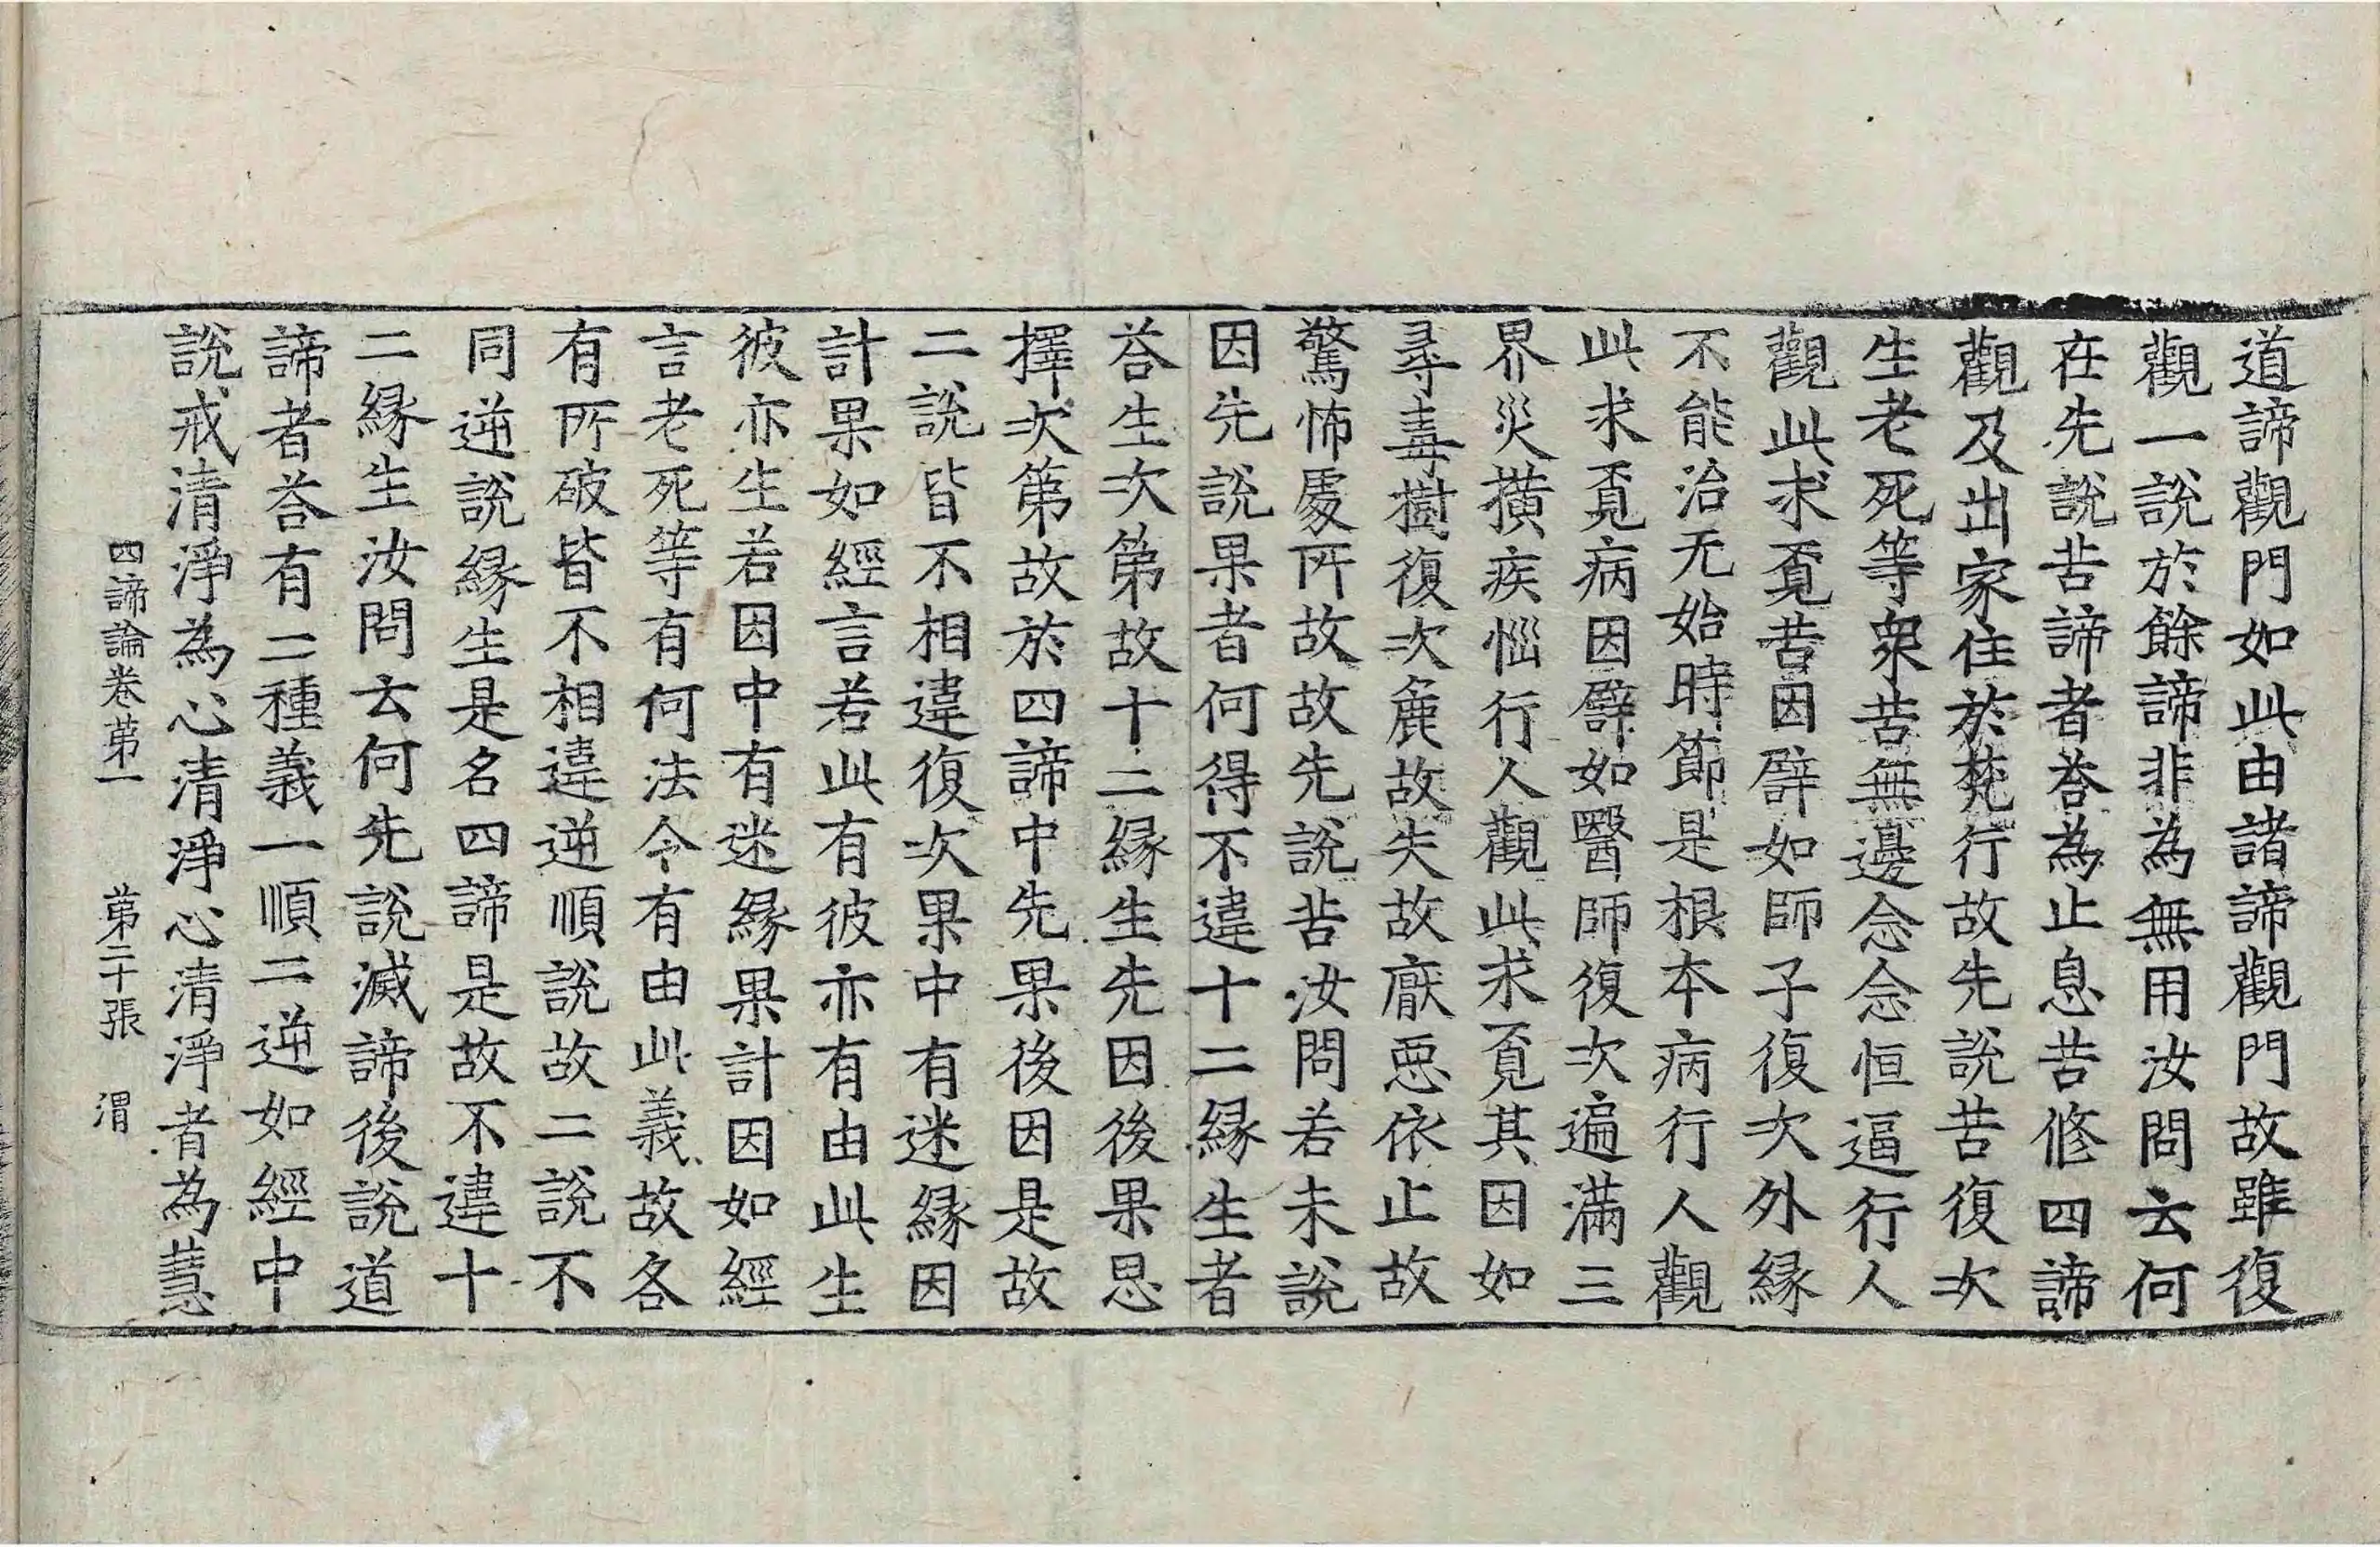 道諦觀門如此由諸諦觀門故雖復
觀一說於餘諦非為無用汝問云何
在先說苦諦者荅為止息苦修四諦
觀及出家住於梵行故先說苦復次
生老死等衆苦無邊念念恒逼行人
觀此求覓苦因譬如師子復次外緣
不能治无始時節是根本病行人觀
此求覓病因譬如醫師復次遍滿三
界災橫疾惱行人觀此求覓其因如
尋毒樹復次麁故失故厭惡依止故
驚怖處所故故先說苦汝問若未說
因先說果者何得不違十二緣生者
荅生次第故十二緣生先因後果思
擇次第故於四諦中先果後因是故
二說皆不相違復次果中有迷緣因
計果如經言若此有彼亦有由此生
彼亦生若因中有迷緣果計因如經
言老死等有何法令有由此義故各
有所破皆不相違逆順說故二說不
同逆說緣生是名四諦是故不違十
二緣生汝問云何先說滅諦後說道
諦者荅有二種義一順二逆如經中
說戒清淨為心清淨心清淨者為慧
四諦論卷苐一　苐二十張　渭